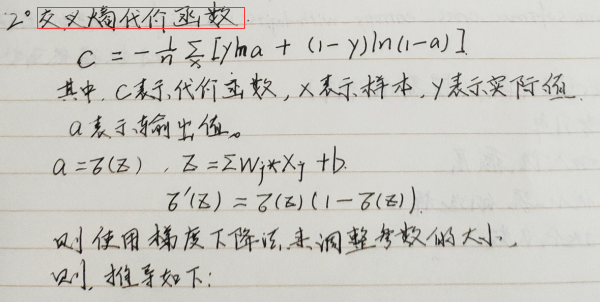 2° 交叉熵代价函数.
C = -1/n Σx [y ln a + (1-y) ln(1-a)]
其中, C表示代价函数, x表示样本, y表示实际值,
a表示输出值。
a = σ(z), z = ΣWj*Xj + b.
σ'(z) = σ(z)(1-σ(z)).
则使用梯度下降法来调整参数的大小,
则, 推导如下: